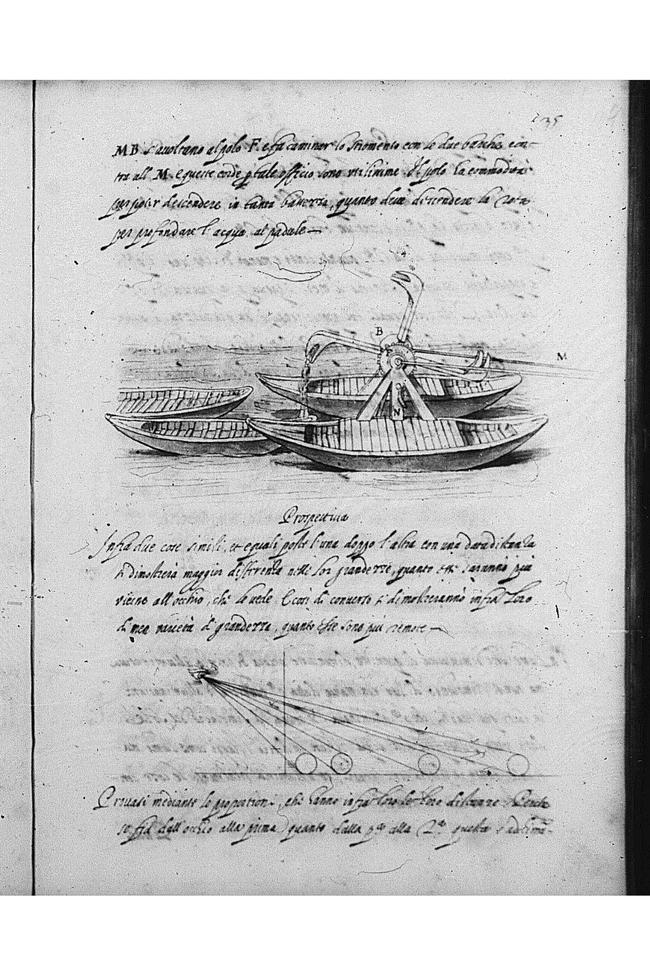 135
M B s'avoltano al polo F. e fa caminar lo stromento con le due barche con-
tra all' M. e queste corde p tale officio sono utilissime. Il polo ha commodità
per poter descendere in tanta bassezza, quanto devi distendere la Rota
per profondare l'acqua al padule
B
M
F
N
Prospettiva
Infra due cose simili, et equali poste l'una doppo l'altra con una data distanza
si dimostrerà maggior differenza nelle lor grandezze, quanto esse saranno più
vicine all'occhio, che le vede. E così di converso si dimostreranno infra loro
di men varietà di grandezza, quanto esse sono più remote
Provasi mediante le proportioni, che hanno infra loro le loro distanze. Perche
se sia dall'occhio alla prima quanto dalla pa. alla 2a. questa